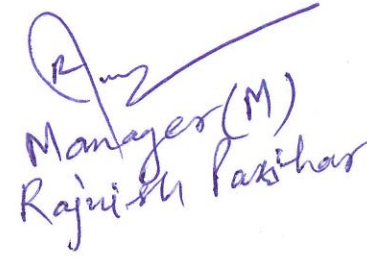 Manager (M)
Rajnish Parihar